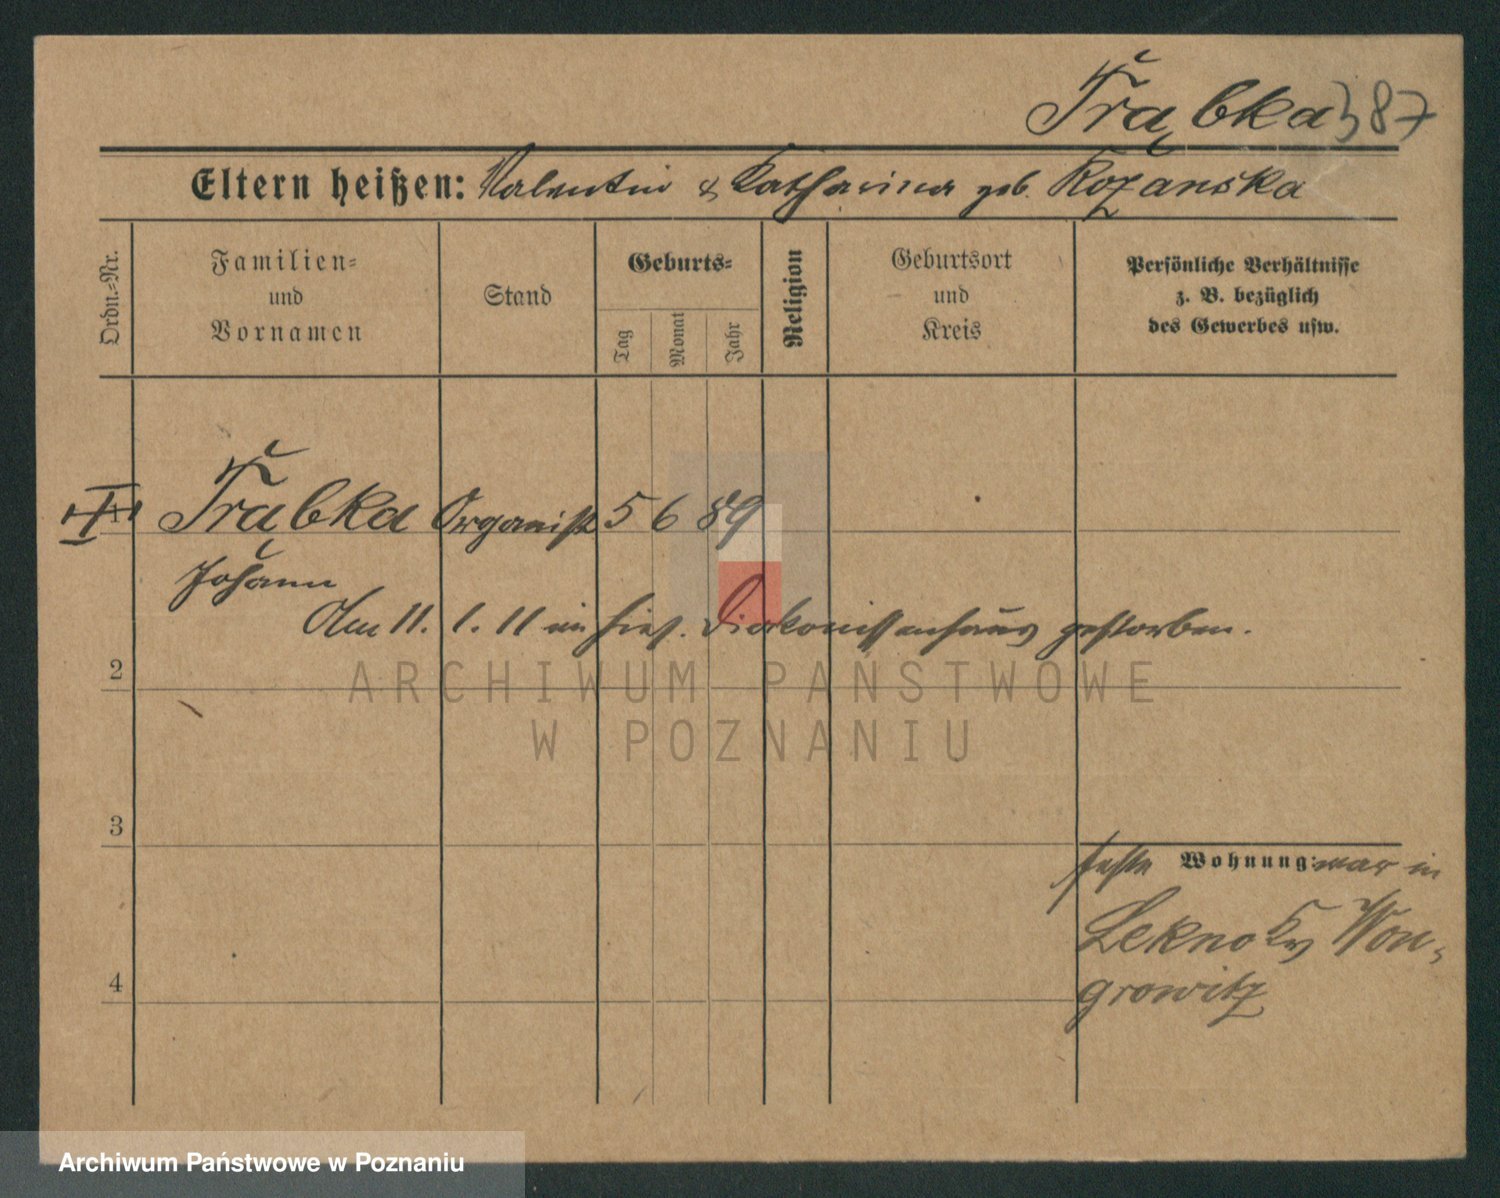 Trąbka 387
Eltern heißen: Valentin & Katharina geb. Rozanska
Ordn.-Nr.
Familien-
und
Vornamen
Stand
Geburts-
Tag
Monat
Jahr
Religion
Geburtsort
und
Kreis
Persönliche Verhältnisse
z. B. bezüglich
des Gewerbes usw.
1 Trąbka Organist 5 6 89
Johann
Am 11. 1. 11 im hies. Diakonissenhaus gestorben.
2
ARCHIWUM PAŃSTWOWE
W POZNANIU
3
feste Wohnung: war in
Lekno Kr Won-
growitz
4
Archiwum Państwowe w Poznaniu